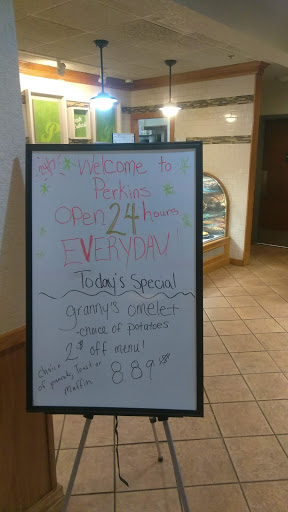 Welcome to
Perkins
Open 24 hours
EVERYDAY!
Today's Special
granny's omelet
-choice of potatoes
2$ off menu!
choice
of pancake, Toast or
Muffin
8.89